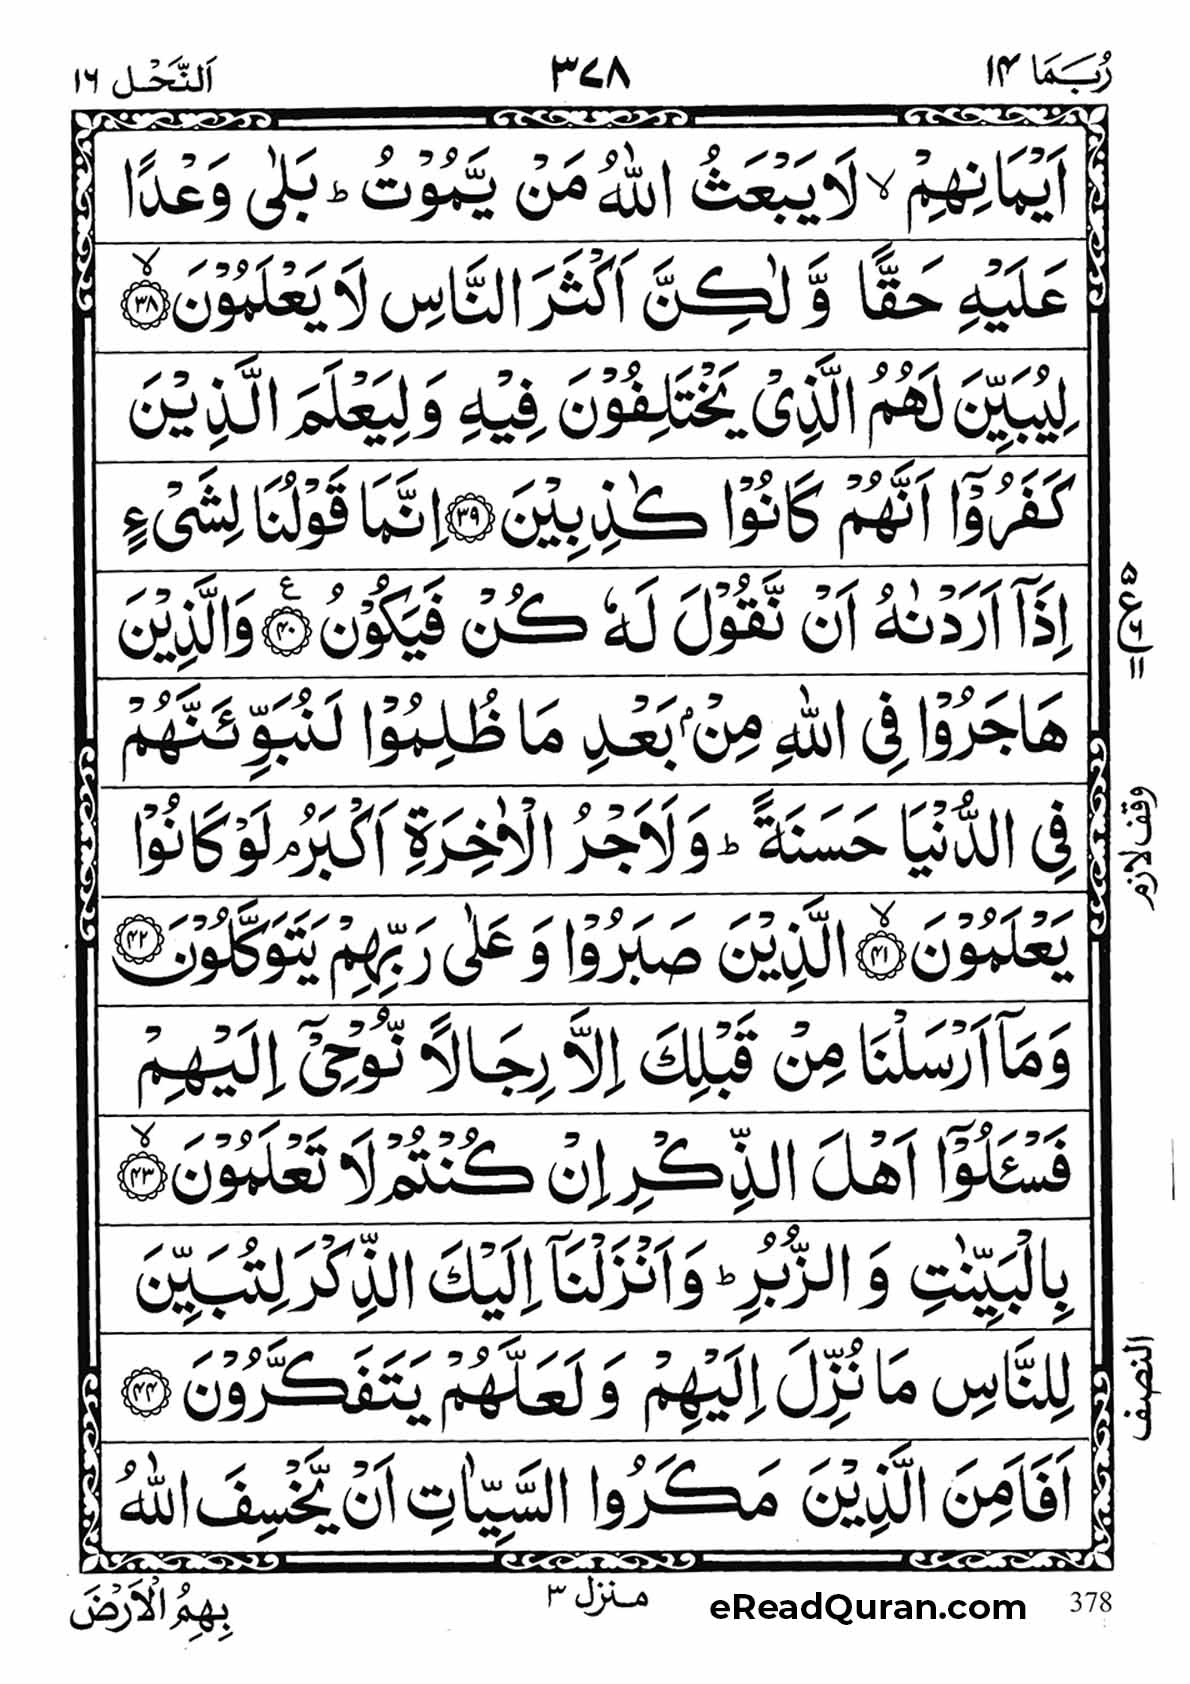 رُبَمَا ١٤
٣٧٨
اَلنَّحْل ١٦
اَيْمَانِهِمْ ۙ لَا يَبْعَثُ اللّٰهُ مَنْ يَّمُوْتُ ؕ بَلٰى وَعْدًا
عَلَيْهِ حَقًّا وَّ لٰكِنَّ اَكْثَرَ النَّاسِ لَا يَعْلَمُوْنَ ۙ ﴿٣٨﴾
لِيُبَيِّنَ لَهُمُ الَّذِىْ يَخْتَلِفُوْنَ فِيْهِ وَ لِيَعْلَمَ الَّذِيْنَ
كَفَرُوْۤا اَنَّهُمْ كَانُوْا كٰذِبِيْنَ ﴿٣٩﴾ اِنَّمَا قَوْلُنَا لِشَىْءٍ
اِذَاۤ اَرَدْنٰهُ اَنْ نَّقُوْلَ لَهٗ كُنْ فَيَكُوْنُ ع ﴿٤٠﴾ وَالَّذِيْنَ
٥
ع
٦
١١
هَاجَرُوْا فِى اللّٰهِ مِنْۢ بَعْدِ مَا ظُلِمُوْا لَنُبَوِّئَنَّهُمْ
فِى الدُّنْيَا حَسَنَةً ؕ وَلَاَجْرُ الْاٰخِرَةِ اَكْبَرُ ۘ لَوْ كَانُوْا
وقف لازم
يَعْلَمُوْنَ ۙ ﴿٤١﴾ الَّذِيْنَ صَبَرُوْا وَ عَلٰى رَبِّهِمْ يَتَوَكَّلُوْنَ ﴿٤٢﴾
وَ مَاۤ اَرْسَلْنَا مِنْ قَبْلِكَ اِلَّا رِجَالًا نُّوْحِىْۤ اِلَيْهِمْ
فَسْـَٔلُوْۤا اَهْلَ الذِّكْرِ اِنْ كُنْتُمْ لَا تَعْلَمُوْنَ ۙ ﴿٤٣﴾
بِالْبَيِّنٰتِ وَ الزُّبُرِ ؕ وَاَنْزَلْنَاۤ اِلَيْكَ الذِّكْرَ لِتُبَيِّنَ
لِلنَّاسِ مَا نُزِّلَ اِلَيْهِمْ وَ لَعَلَّهُمْ يَتَفَكَّرُوْنَ ﴿٤٤﴾
النصف
اَفَاَمِنَ الَّذِيْنَ مَكَرُوا السَّيِّاٰتِ اَنْ يَّخْسِفَ اللّٰهُ
بِهِمُ الْاَرْضَ
منزل ٣
eReadQuran.com
378